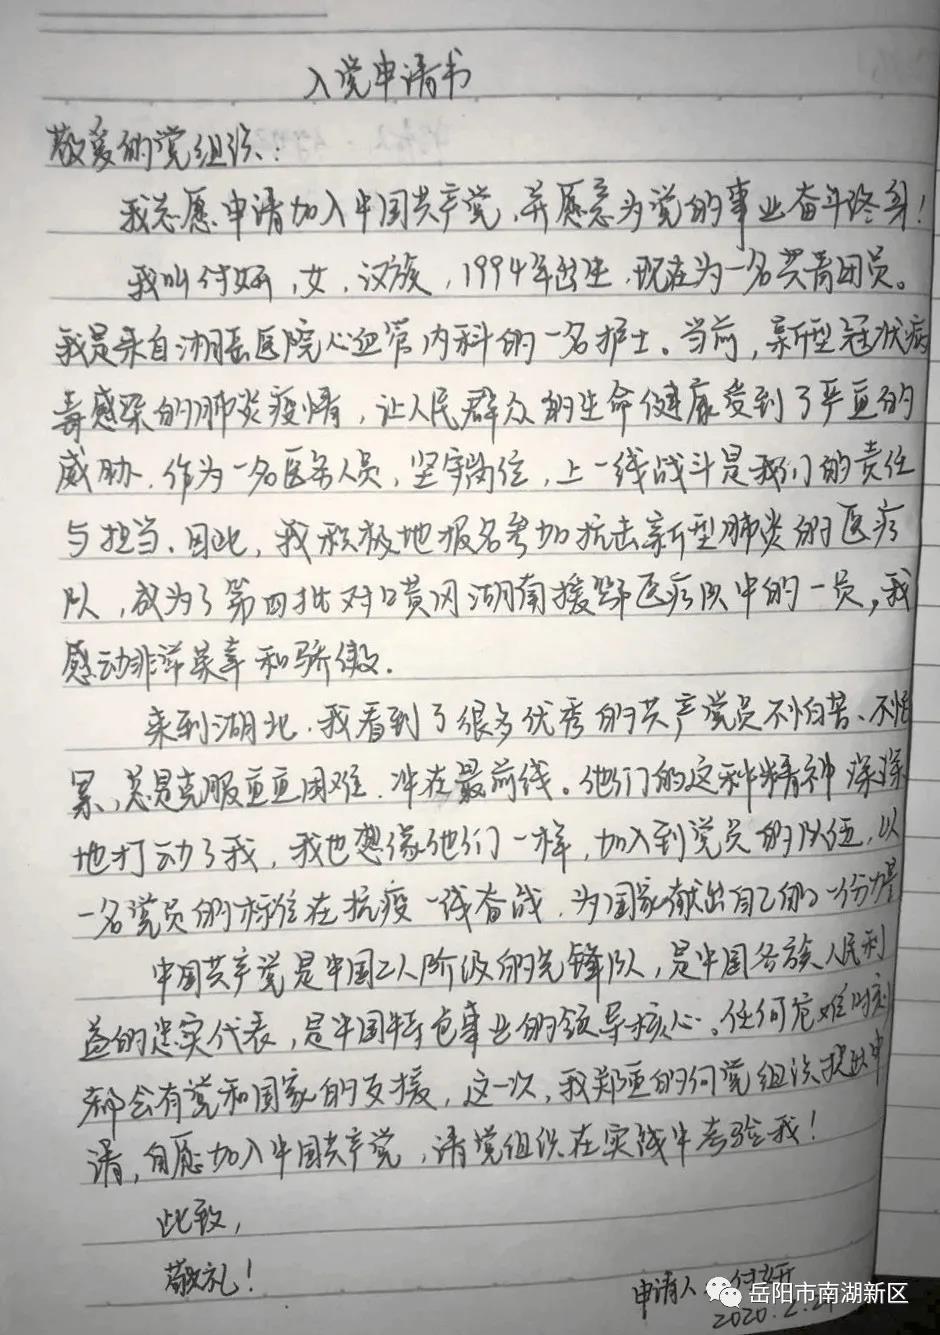 入党申请书
敬爱的党组织：
我志愿申请加入中国共产党，并愿意为党的事业奋斗终身！
我叫付妍，女，汉族，1994年出生，现在为一名共青团员。
我是来自湖岳医院心血管内科的一名护士。当前，新型冠状病
毒感染的肺炎疫情，让人民群众的生命健康受到了严重的
威胁，作为一名医务人员，坚守岗位，上一线战斗是我们的责任
与担当，因此，我积极地报名参加抗击新型肺炎的医疗
队，成为了第四批对口黄冈湖南援鄂医疗队中的一员，我
感动非常荣幸和骄傲.
来到湖北，我看到了很多优秀的共产党员不怕苦、不怕
累，总是克服重重困难，冲在最前线。他们的这种精神深深
地打动了我，我也想像他们一样，加入到党员的队伍，以
一名党员的标准在抗疫一线奋战，为国家献出自己的一份力量
中国共产党是中国工人阶级的先锋队，是中国各族人民利
益的忠实代表，是中国特色事业的领导核心。任何危难时刻
都会有党和国家的支援，这一次，我郑重的向党组织提出申
请，自愿加入中国共产党，请党组织在实践中考验我！
此致，
敬礼！
申请人 付妍
2020.2.21
岳阳市南湖新区